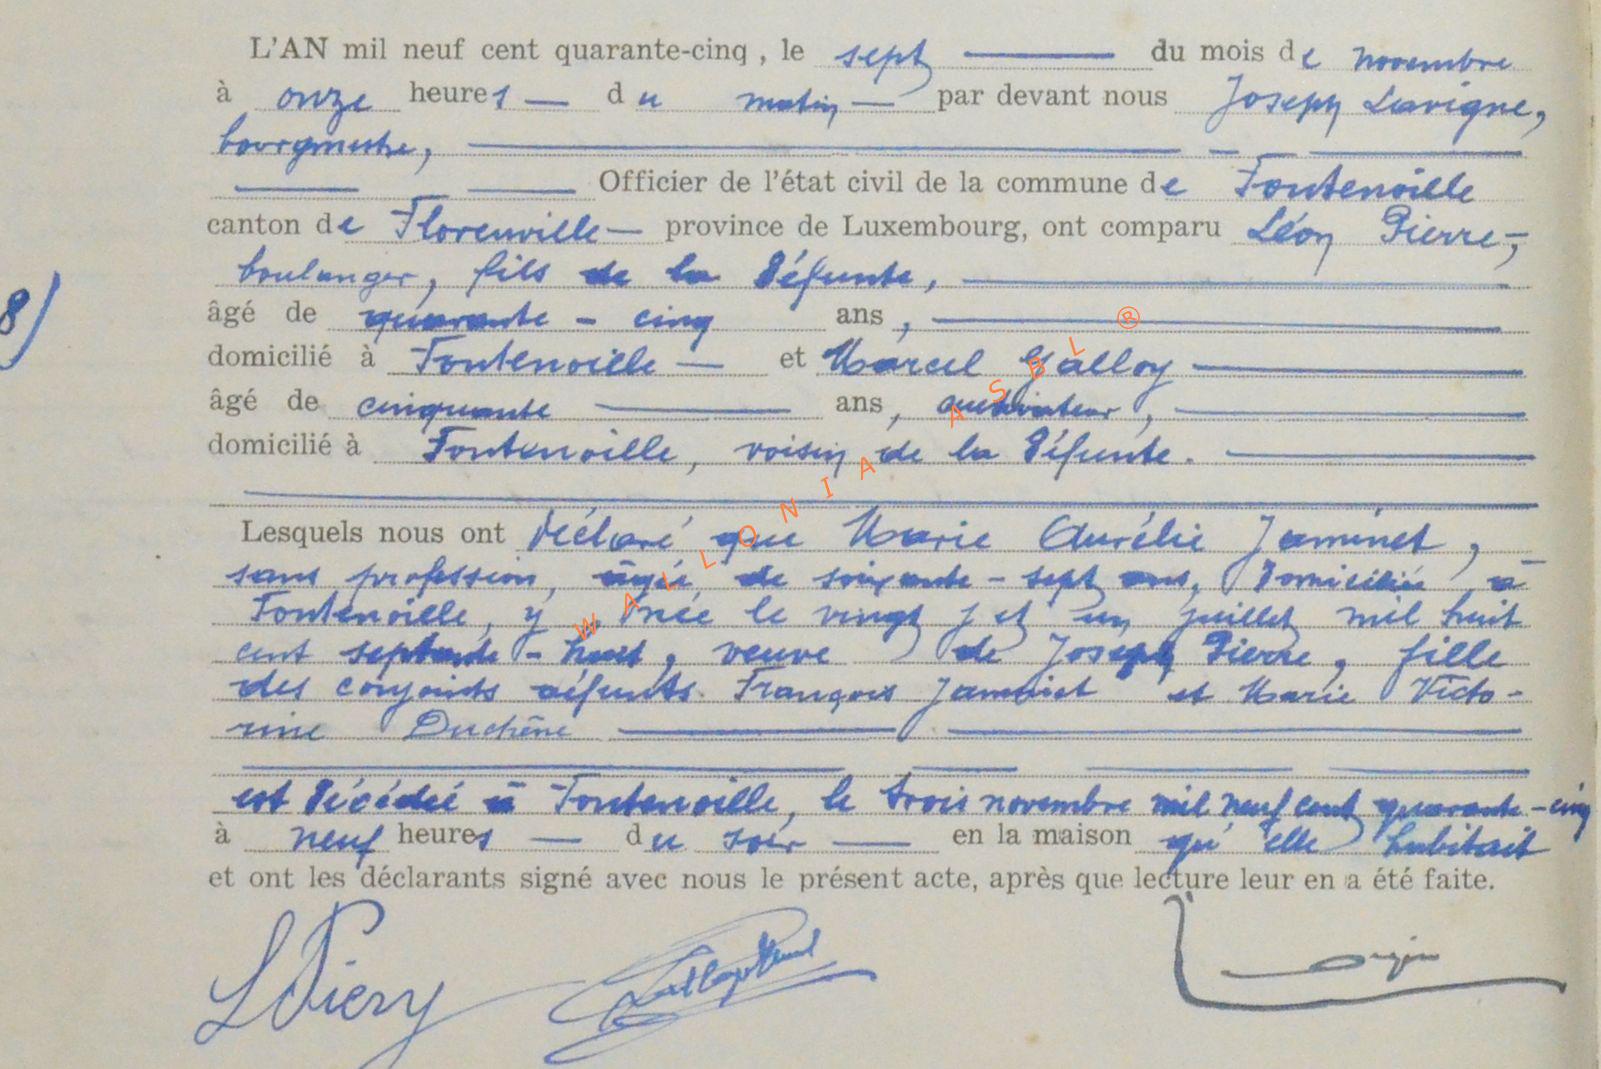 L'AN mil neuf cent quarante-cinq, le sept du mois de novembre
à onze heures — du matin — par devant nous Joseph Lavigne,
bourgmestre,
Officier de l'état civil de la commune de Fontenoille
canton de Florenville — province de Luxembourg, ont comparu Léon Pierre,
boulanger, fils de la défunte,
âgé de quarante-cinq ans,
domicilié à Fontenoille — et Marcel Galloy
âgé de cinquante ans, cultivateur,
domicilié à Fontenoille, voisin de la défunte.
Lesquels nous ont déclaré que Marie Aurélie Jaminet,
sans profession, âgée de soixante-sept ans, domiciliée à
Fontenoille, y née le vingt et un juillet mil huit
cent septante-huit, veuve de Joseph Pierre, fille
des conjoints défunts François Jaminet et Marie Victo-
rine Duchêne
est décédée à Fontenoille, le trois novembre mil neuf cent quarante-cinq
à neuf heures — du soir — en la maison qu'elle habitait
et ont les déclarants signé avec nous le présent acte, après que lecture leur en a été faite.
8)
WALLONIA ASBL ®